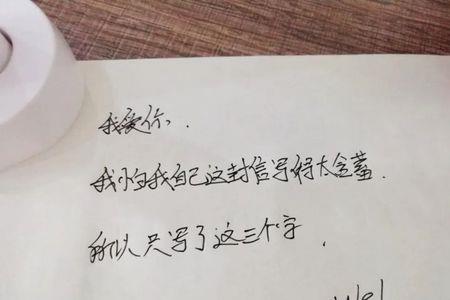 我爱你.
我怕我自己这封信写得太含蓄.
所以只写了这三个字.